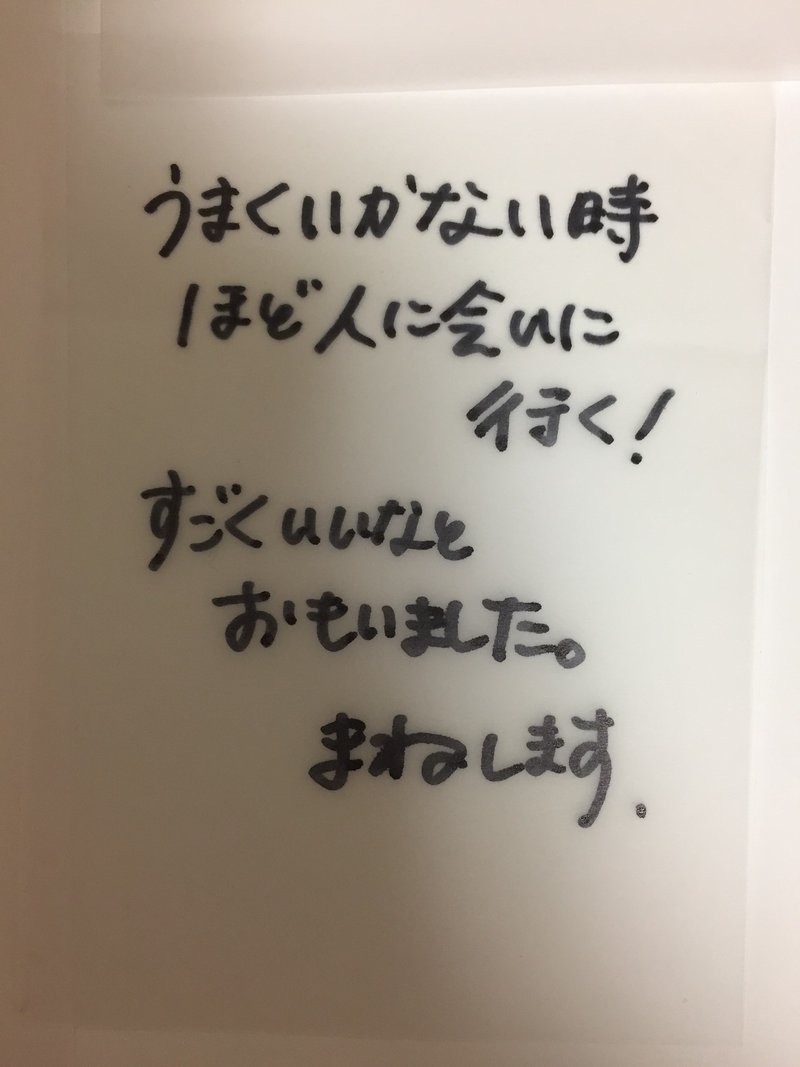 うまくいかない時
ほど人に会いに
行く!
すごくいいなと
おもいました。
まねします.